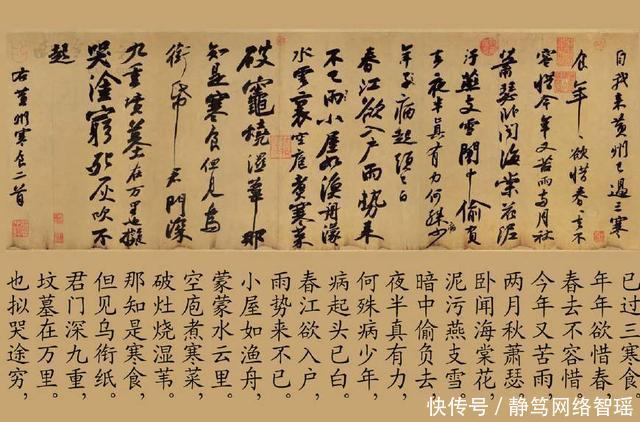 自我來黃州已過三寒
食年〻欲惜春春去不
容惜今年又苦雨兩月秋
蕭瑟臥聞海棠花泥
汙燕支雪闇中偷負
去夜半真有力何殊少
年子病起頭已白
春江欲入戶雨勢來
不已雨小屋如漁舟濛〻
水雲裏空庖煮寒菜
破竈燒溼葦那
知是寒食但見烏
銜帋君門深
九重墳墓在万里也擬
哭塗窮死灰吹不
起
右黃州寒食二首
已过三寒食。
年年欲惜春，
春去不容惜。
今年又苦雨，
两月秋萧瑟，
卧闻海棠花，
泥污燕支雪。
暗中偷负去，
夜半真有力，
何殊病少年，
病起头已白。
春江欲入户，
雨势来不已。
小屋如渔舟，
蒙蒙水云里。
空庖煮寒菜，
破灶烧湿苇。
那知是寒食，
但见乌衔纸。
君门深九重，
坟墓在万里。
也拟哭途穷，
快传号／静笃网络智瑶